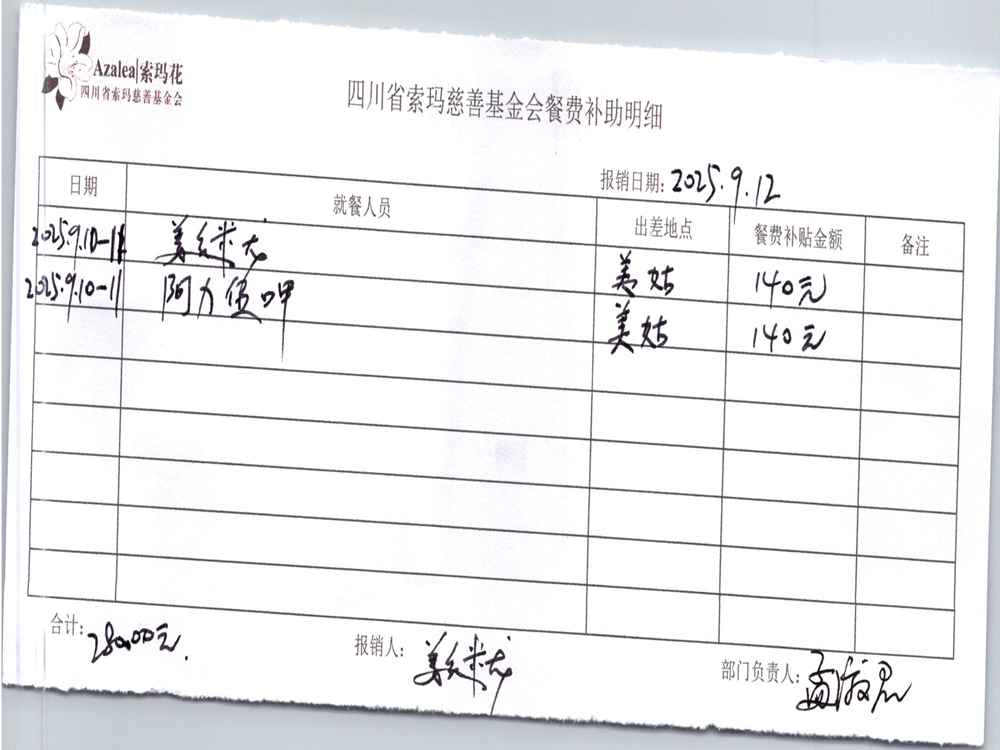 Azalea|索玛花
四川省索玛慈善基金会
四川省索玛慈善基金会餐费补助明细
报销日期: 2025.9.12
日期 就餐人员 出差地点 餐费补贴金额 备注
2025.9.10-11 美姑 140元
2025.9.10-11 阿力伍呷 美姑 140元
合计: 280.00元.
报销人:
部门负责人: